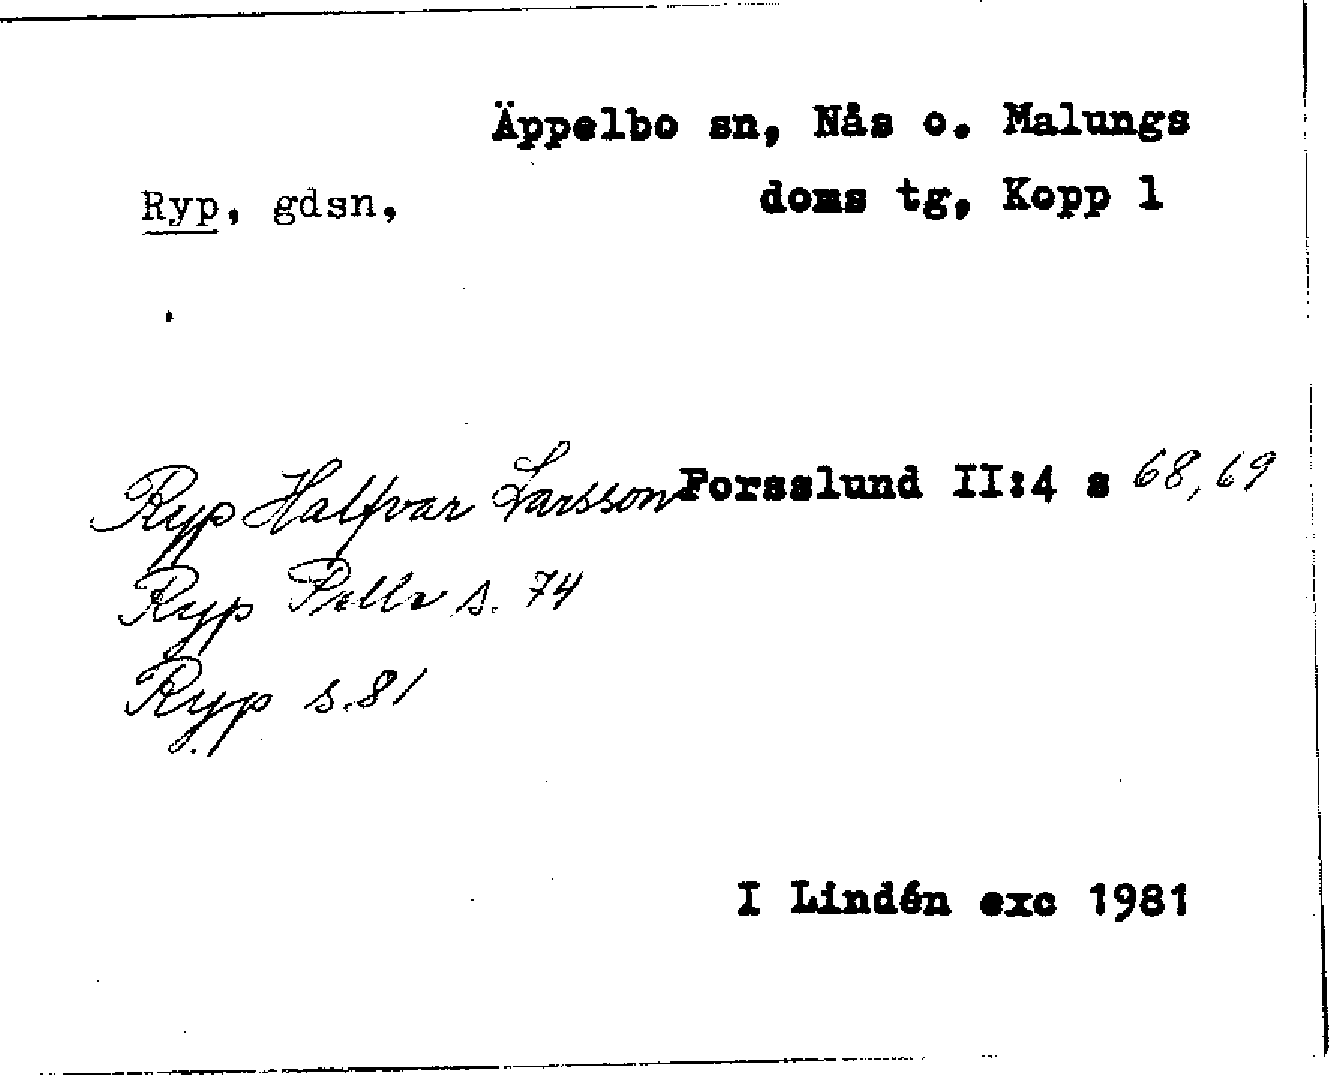 Äppelbo sn, Nås o. Malungs
Ryp, gdsn,
doms tg, Kopp l
Ryp Halfvar Larsson Forsslund II:4 s 68, 69
Ryp Pelle s. 74
Ryp s. 81
I Lindén exc 1981